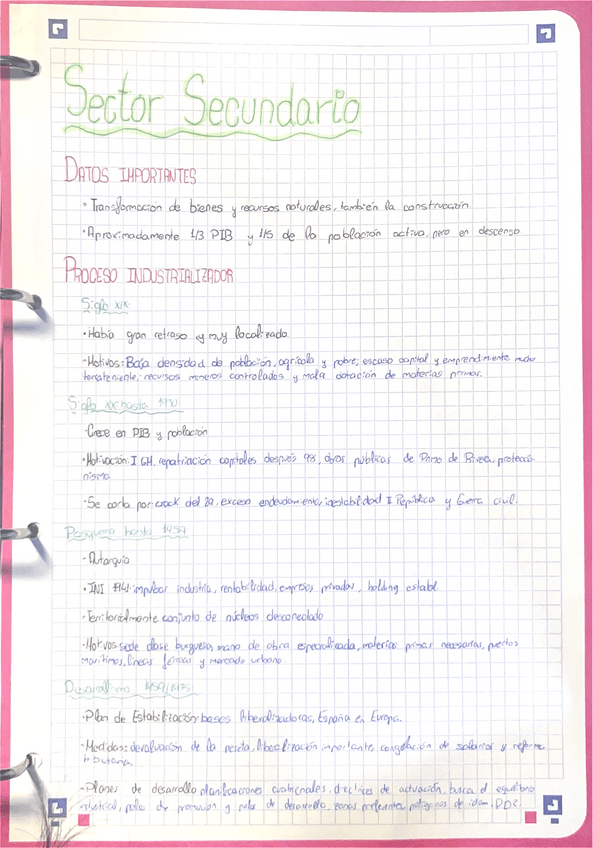 Sector Secundario
DATOS IMPORTANTES
· Transformación de bienes y recursos naturales, también la construcción
· Aproximadamente 1/3 PIB y 1/5 de la población activa, pero en descenso
PROCESO INDUSTRIALIZADOR
Siglo XIX
· Había gran retraso y muy localizado
· Motivos: Baja densidad de población, agrícola y pobre; escaso capital y emprendimiente
terrateniente; recursos mineros controlados y mala dotación de materias primas.
Siglo XX hasta
· Crece en PIB y población
· Motivación: I GM, repatriación capitales después 98, obras públicas de Primo de Rivera, proteccio-
nismo
· Se corta por: crack del 29, exceso endeudamiento, inestabilidad I República y Guerra civil.
Posguerra hasta 1959
· Autarquía
· INI 1941: impulsar industria, rentabilidad, empresas privadas, holding estatal
· Territorialmente conjunto de núcleos desconectado
· Motivos: sede clase burguesa, mano de obra especializada, materias primas necesarias, puertos
marítimos, líneas férreas y mercado urbano.
Desarrollismo 1959/1975:
· Plan de Estabilización: bases liberalizadoras, España en Europa.
· Medidas: devaluación de la peseta, liberalización importante, congelación de salarios y reforma
tributaria.
· Planes de desarrollo planificaciones cuatrienales, directrices de actuación, busca el equilibrio
industrial, polos de promoción y polos de desarrollo, zonas preferentes, polígonos de